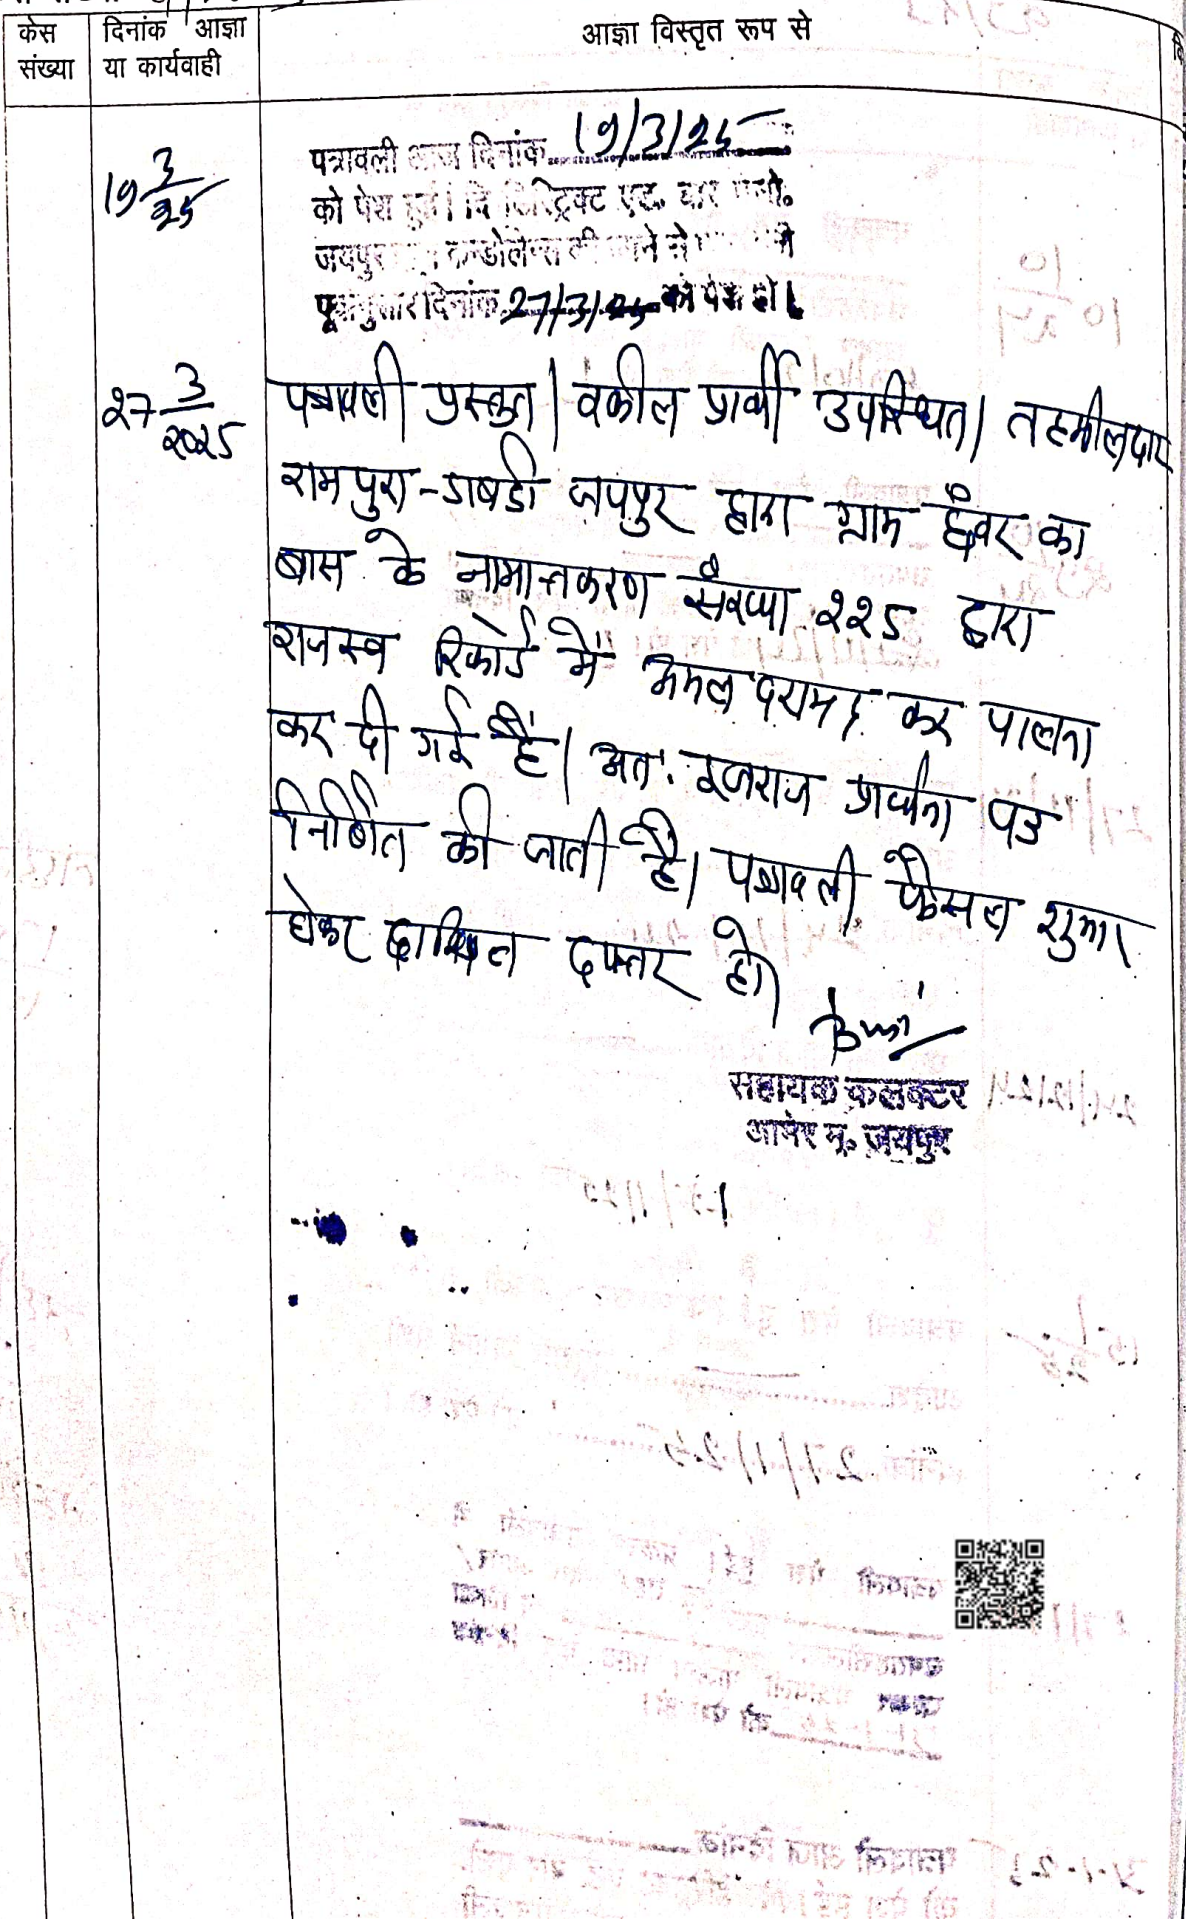 केस दिनांक आज्ञा आज्ञा विस्तृत रूप से
संख्या या कार्यवाही
19 3/25
पत्रावली आज दिनांक 19/3/25
को पेश हुई। दि डिस्ट्रिक्ट एड. बार एसो.
जयपुर कन्डोलेन्स की
पूर्वानुसार दिनांक 27/3/25 को पेश हो।
27 3/2025
पत्रावली प्रस्तुत। वकील प्रार्थी उपस्थित। तहसीलदार
रामपुरा-डाबडी जयपुर द्वारा ग्राम छँवर का
बास के नामान्तकरण सँख्या 225 द्वारा
राजस्व रिकोर्ड में अमल दरामद कर पालना
कर दी गई है। अतः इजराज प्रार्थना पत्र
निर्णित की जाती है। पत्रावली फैसल शुमार
होकर दाखिल दफ्तर हो।
सहायक कलक्टर
आमेर मु. जयपुर